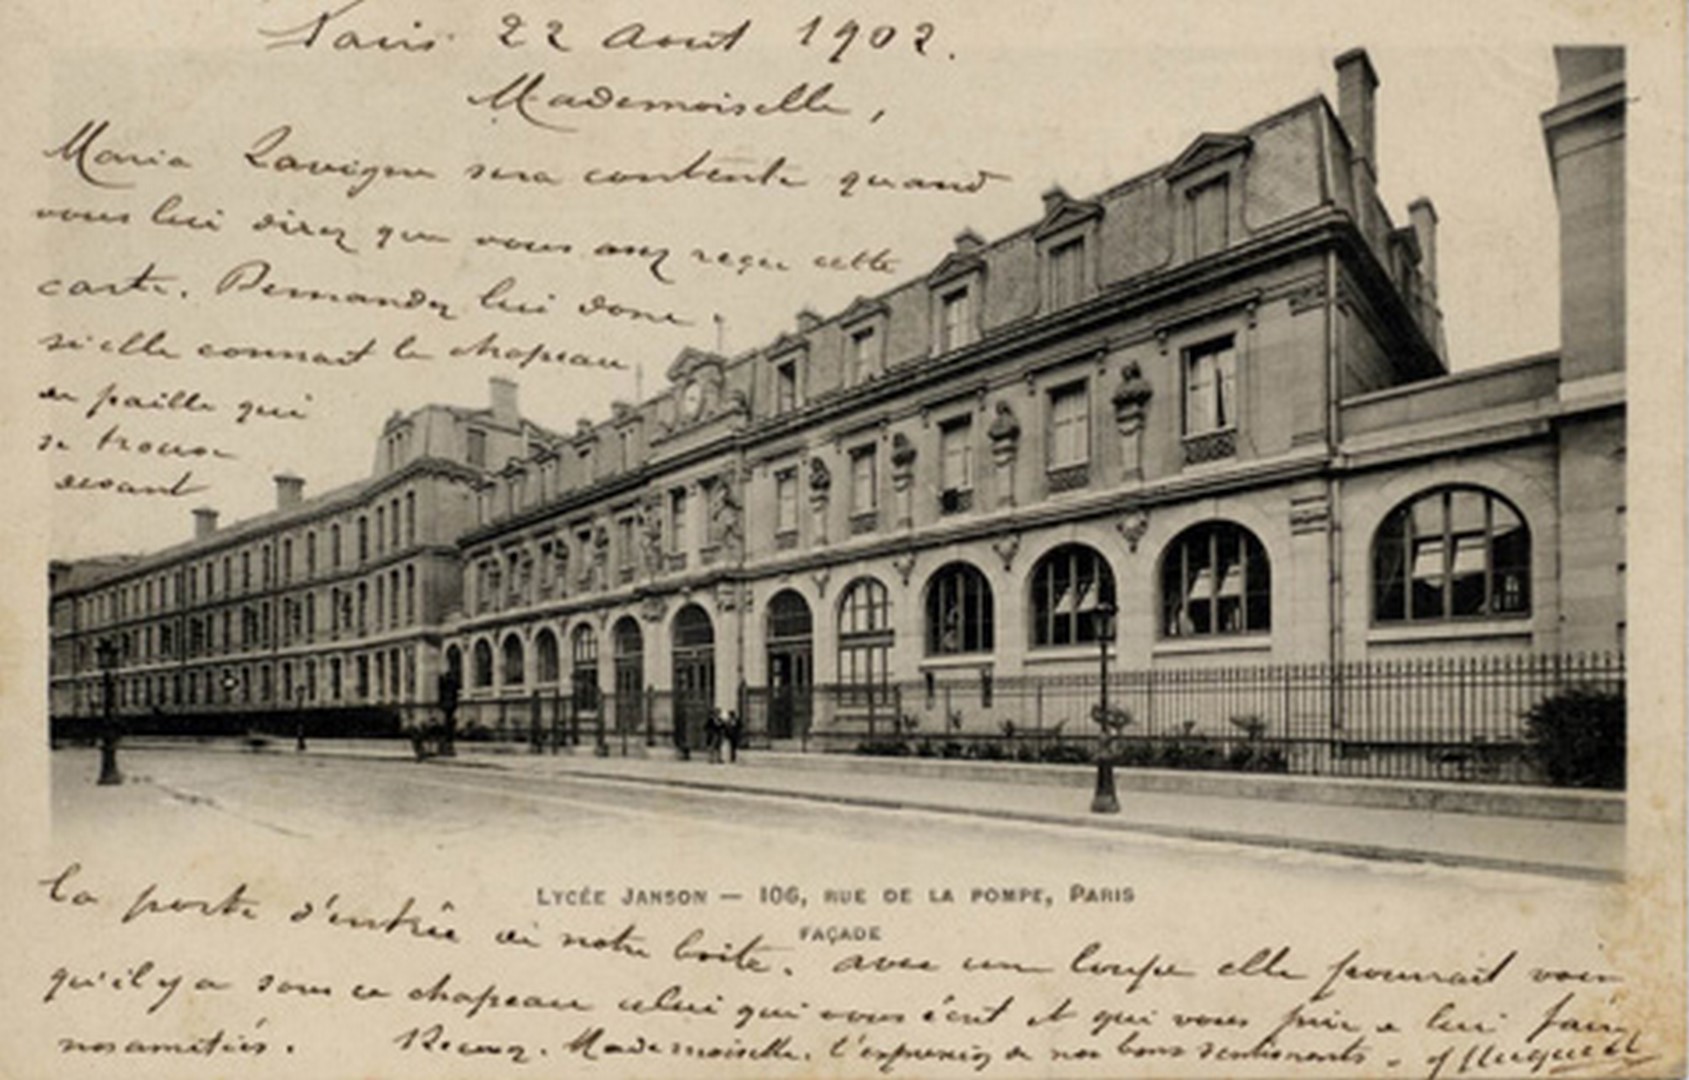 Paris 22 Aout 1902.
Mademoiselle,
Maria Lavigne sera contente quand
vous lui direz que vous avez reçu cette
carte. Demandez lui donc
si elle connait le chapeau
de paille qui
se trouve
devant
la porte d'entrée de notre boite. avec une loupe elle pourrait voir
LYCÉE JANSON — 106, RUE DE LA POMPE, PARIS
FAÇADE
qu'il y a sous ce chapeau celui qui vous écrit et qui vous prie de lui faire
nos amitiés. Recevez. Mademoiselle. l'expression de nos bons sentiments -